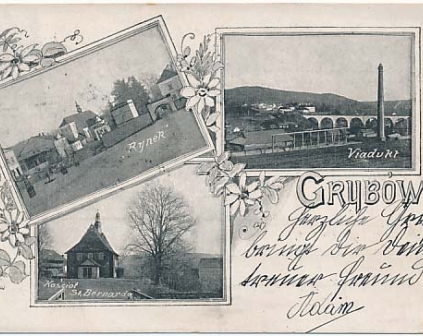 "Rynek"
Viadukt
GRYBÓW
Kościoł
St. Bernarda
Herzliche Grü
bringt Dir Dein
treuer Freund
Adam